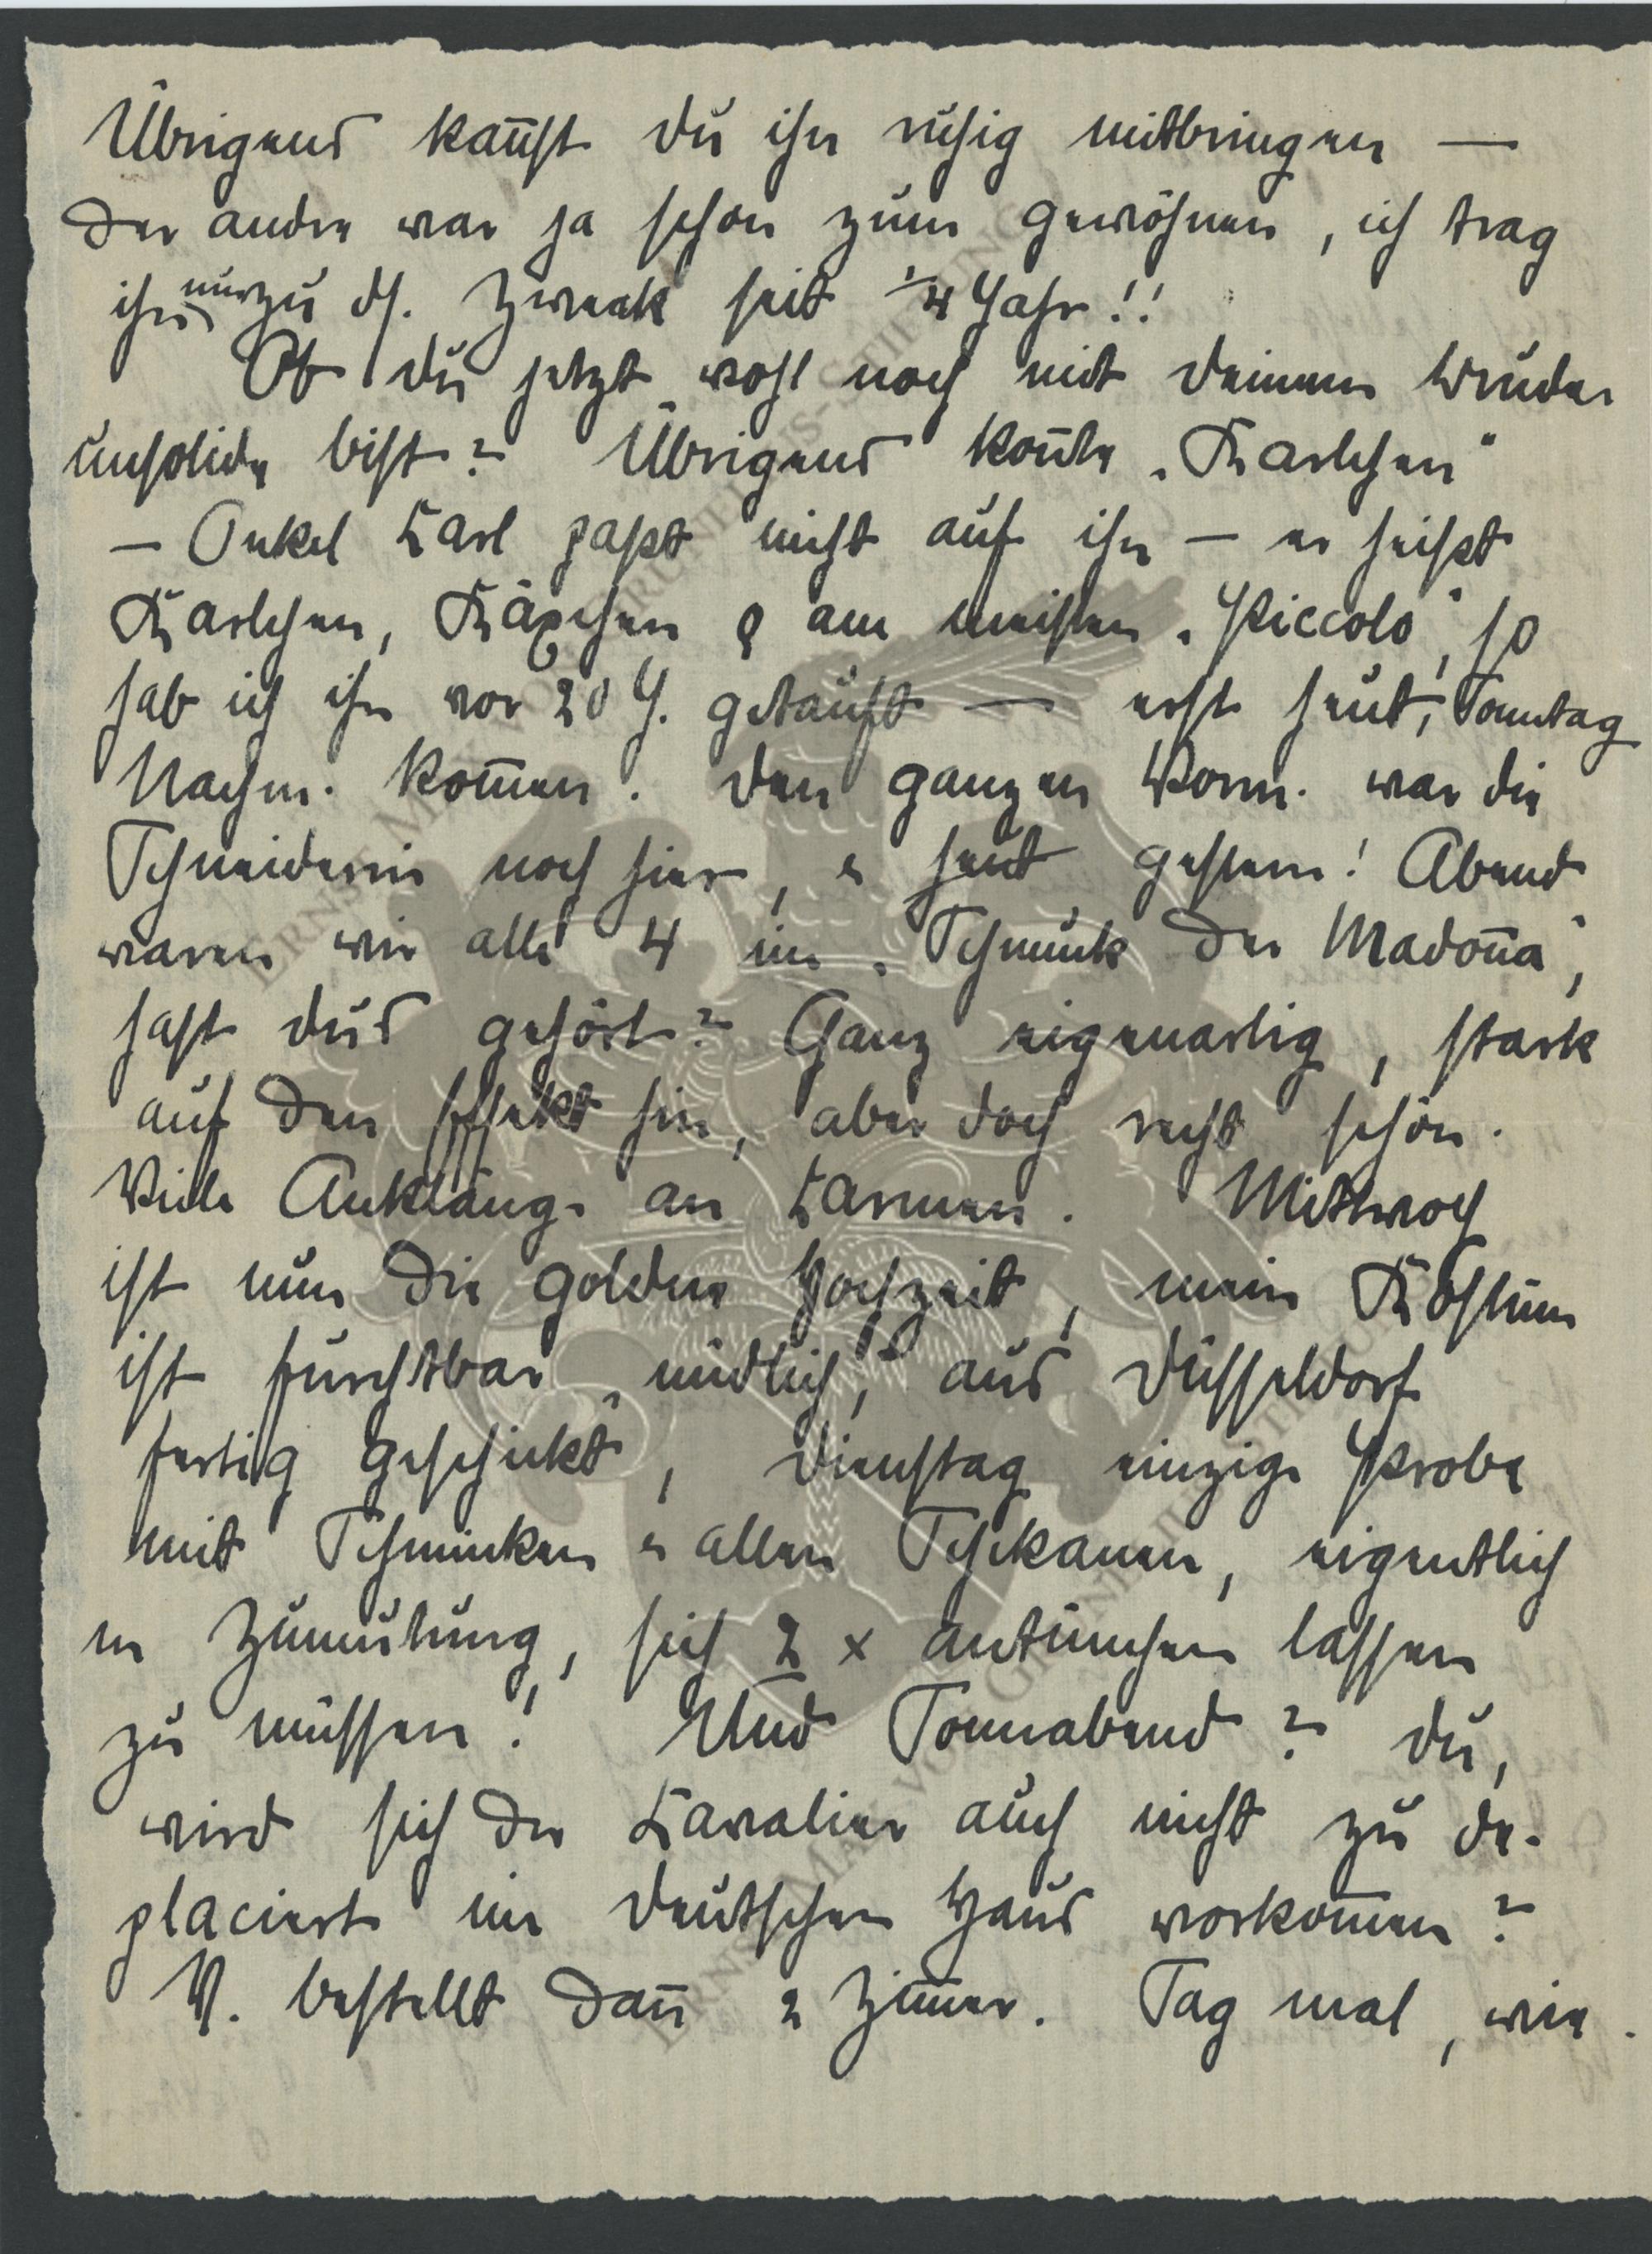 Übrigens kannst du ihn ruhig mitbringen —
der andre war ja schon zum gewöhnen, ich trag
ihn nur zu ds. Zweck seit ¼ Jahr!!
Ob du jetzt wohl noch mit deinem Bruder
unsolide bist? Übrigens konnte „Karlchen"
— Onkel Carl paßt nicht auf ihn — er heißt
Karlchen, Käpchen & am meisten „Piccolo", so
hab ich ihn vor 20 J. getauft — erst heut, Sonntag
Nachm. kommen. Den ganzen Vorm. war die
Schneiderin noch hier, u heut gestern! Abend
waren wir alle 4 im „Schmuck der Madonna",
hast dus gehört? Ganz eigenartig, stark
auf den Effekt hin, aber doch recht schön.
Viele Anklänge an Carmen. Mittwoch
ist nun die goldne Hochzeit, mein Kostüm
ist furchtbar „niedlich", aus Düsseldorf
fertig geschickt, Dienstag einzige Probe
mit Schminken u allen Schikanen, eigentlich
ne Zumutung, sich 2 x antünchen lassen
zu müssen! Und Sonnabend? Du,
wird sich der Cavalier auch nicht zu de-
placiert im deutschen Haus vorkommen?
V. bestellt dann 2 Zimmer. Sag mal, wie